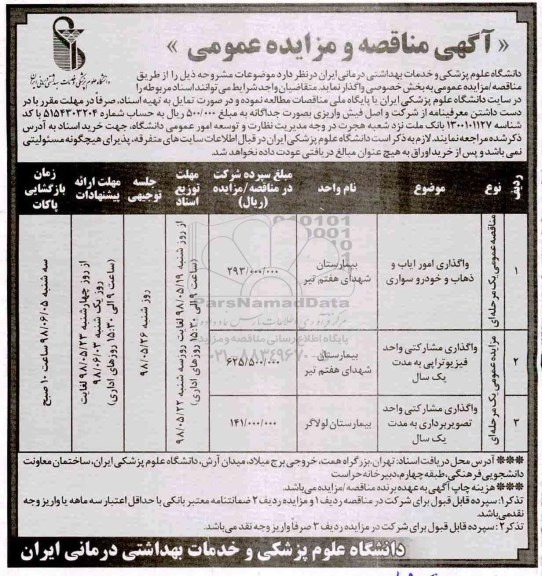 « آگهی مناقصه و مزایده عمومی »
دانشگاه علوم پزشکی و خدمات بهداشتی درمانی ایران در نظر دارد موضوعات مشروحه ذیل را از طریق
مناقصه/مزایده عمومی به بخش خصوصی واگذار نماید. متقاضیان واجد شرایط می توانند اسناد مربوطه را
در سایت دانشگاه علوم پزشکی ایران یا پایگاه ملی مناقصات مطالعه نموده و در صورت تمایل به تهیه اسناد، صرفاً در مهلت مقرر با در
دست داشتن معرفینامه از شرکت و اصل فیش واریزی بصورت جداگانه به مبلغ ۵۰۰/۰۰۰ ریال به حساب شماره ۵۱۵۴۳۰۳۲۰۴ با کد
شناسه ۱۳۰۰۱۰۱۱۲۷ بانک ملت نزد شعبه هجرت در وجه مدیریت نظارت و توسعه امور عمومی دانشگاه، جهت خرید اسناد به آدرس
ذکر شده مراجعه نمایند. لازم به ذکر است دانشگاه علوم پزشکی ایران در قبال اطلاعات سایت های متفرقه، پذیرای هیچگونه مسئولیتی
نمی باشد و پس از خرید اوراق به هیچ عنوان مبالغ دریافتی عودت داده نخواهد شد.
ردیف نوع موضوع نام واحد مبلغ سپرده شرکت در مناقصه/مزایده (ریال) مهلت توزیع اسناد جلسه توجیهی مهلت ارائه پیشنهادات زمان بازگشایی پاکات
۱ مناقصه عمومی یک مرحله ای واگذاری امور ایاب و ذهاب و خودرو سواری بیمارستان شهدای هفتم تیر ۲۹۳/۰۰۰/۰۰۰
از روز شنبه ۹۸/۰۵/۱۹ لغایت روز سه شنبه ۹۸/۰۵/۲۲ (ساعت ۹ الی ۱۵:۳۰ روزهای اداری)
روز شنبه ۹۸/۰۵/۲۶
از روز چهارشنبه ۹۸/۰۵/۲۳ لغایت روز یک شنبه ۹۸/۰۶/۰۳ (ساعت ۹ الی ۱۵:۳۰ روزهای اداری)
سه شنبه ۹۸/۰۶/۰۵ ساعت ۱۰ صبح
۲ مزایده عمومی یک مرحله ای واگذاری مشارکتی واحد فیزیوتراپی به مدت یک سال بیمارستان شهدای هفتم تیر ۶۲۵/۵۰۰/۰۰۰
۳ واگذاری مشارکتی واحد تصویربرداری به مدت یک سال بیمارستان لولاگر ۱۴۱/۰۰۰/۰۰۰
ParsNamadData
پایگاه اطلاع رسانی مناقصه و مزایده
۰۲۱-۸۸۳۴۹۶۷۰
❊❊❊ آدرس محل دریافت اسناد: تهران، بزرگراه همت، خروجی برج میلاد، میدان آرش، دانشگاه علوم پزشکی ایران، ساختمان معاونت
دانشجویی فرهنگی، طبقه چهارم، دبیرخانه حراست
❊❊❊ هزینه چاپ آگهی به عهده برنده مناقصه/مزایده می باشد.
تذکر۱: سپرده قابل قبول برای شرکت در مناقصه ردیف ۱ و مزایده ردیف ۲ ضمانتنامه معتبر بانکی با حداقل اعتبار سه ماهه یا واریز وجه
نقد می باشد.
تذکر۲: سپرده قابل قبول برای شرکت در مزایده ردیف ۳ صرفاً واریز وجه نقد می باشد.
دانشگاه علوم پزشکی و خدمات بهداشتی درمانی ایران